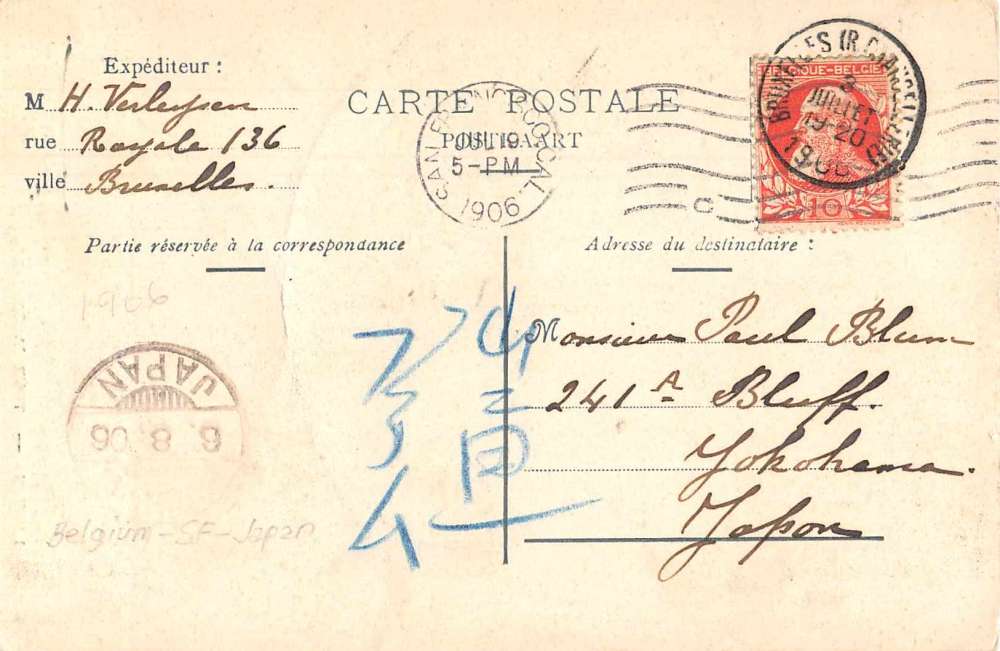 Expéditeur :
M H. Verleysen
rue Royale 136
ville Bruxelles.
CARTE POSTALE
POSTKAART
SAN FRANCISCO, CAL.
JUL 19
5-PM
1906
BRUXELLES (R. CHANCELLERIE)
3
JUILLET
19-20
1906
BELGIQUE-BELGIË
10
C
Partie réservée à la correspondance
Adresse du destinataire :
1906
JAPAN
6.8.06
Belgium-SF-Japan
Monsieur Paul Blum
241 A Bluff.
Yokohama.
Japon